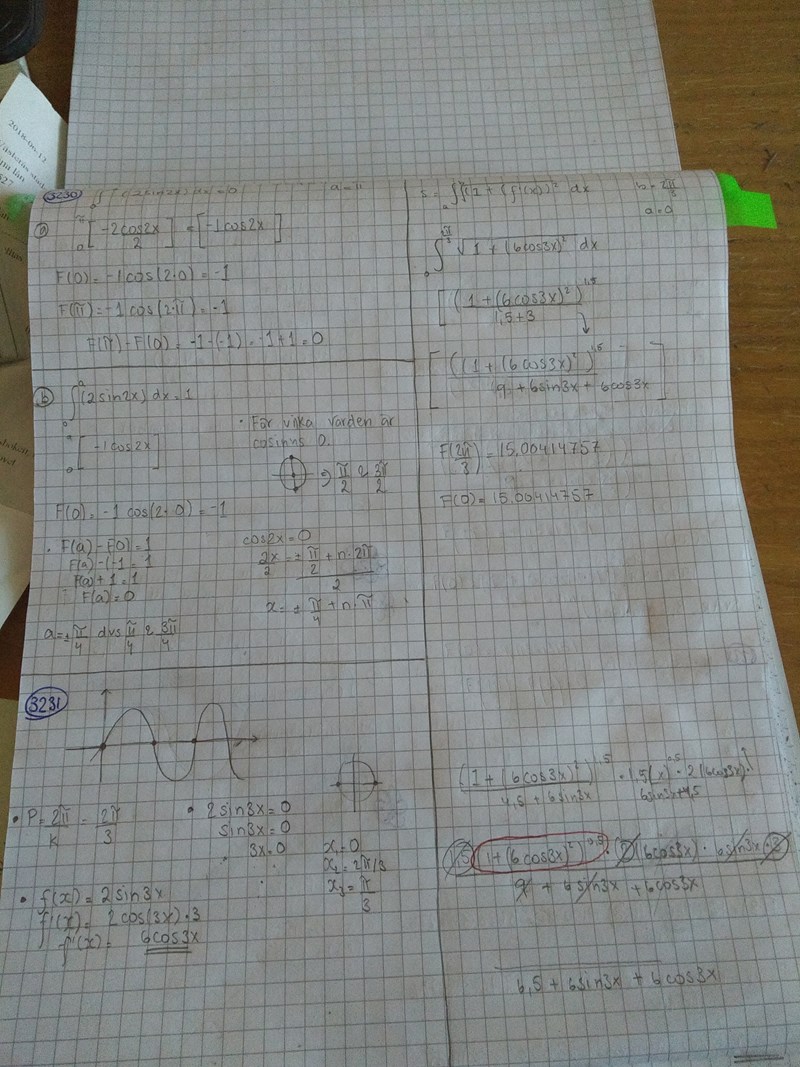 2018-06-12
3230
∫(2sin2x)dx=0 a=π
a) [-2cos2x/2] = [-1cos2x]
F(0)=-1cos(2·0)=-1
F(π)=-1cos(2·π)=-1
F(π)-F(0)=-1-(-1)=-1+1=0
b) ∫(2sin2x)dx=1
[-1cos2x]
· För vilka värden är
cosinus 0.
⇒ π/2 & 3π/2
F(0)=-1cos(2·0)=-1
· F(a)-F(0)=1
F(a)-(-1=1
F(a)+1=1
F(a)=0
cos2x=0
2x/2=±π/2+n·2π/2
x=±π/4+n·π
a=±π/4 dvs π/4 & 3π/4
3231
• P=2π/k=2π/3
• 2sin3x=0
sin3x=0
3x=0
x₁=0
x₂=2π/3
x₃=π/3
• f(x)=2sin3x
f'(x)=2cos(3x)·3
f'(x)=6cos3x
S=∫√(1+(f'(x))² dx b=2π/3
a=0
∫√1+(6cos3x)² dx
[(1+(6cos3x)²)^1,5/1,5+3
[((1+(6cos3x)²)^1,5/9+6sin3x+6cos3x]
F(2π/3)=15.00414757
F(0)=15.00414757
(1+(6cos3x)²)^1,5/4,5+6sin3x · 1,5(x)^0,5·2(6cos3x)·
6sin3x·4,5
1,5(1+(6cos3x)²)^0,5·2(6cos3x)·6sin3x·3
9+6sin3x+6cos3x
6,5+6sin3x+6cos3x